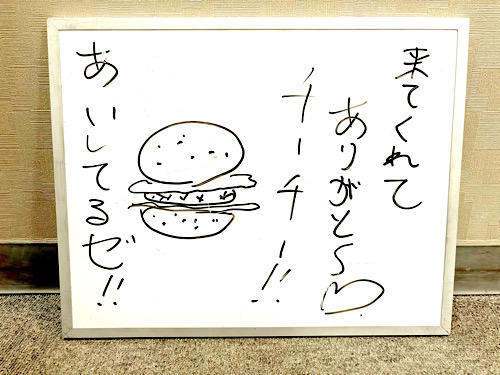 来てくれて
ありがと〜♡
チーチー!!
あいしてるゼ!!